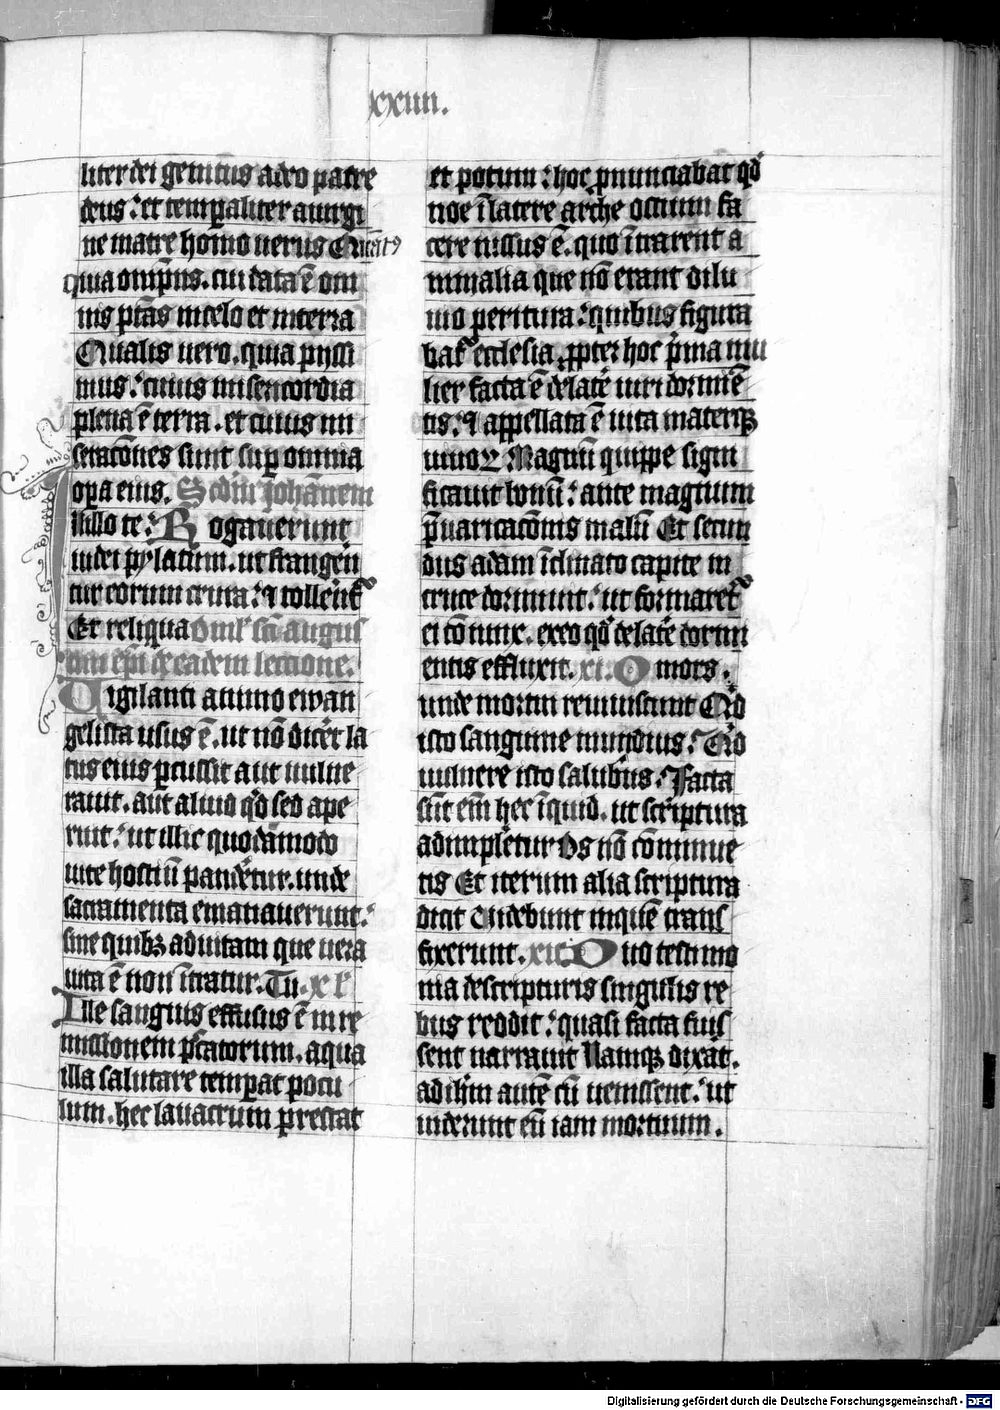 xxiiii.
liter dei genitus a deo patre
deus : et temp̲aliter a uirgi
ne matre homo uerus Quātꝰ
quia om̅ip̅ns . cui data ē om
nis p̅tās in celo et in terra
Qualis uero . quia pijssi
mus : cuius misericordia
plena ē terra . et cuius mi
seracōnes sunt sup̲ omnia
op̲a eius . Scd̅m Johānem
In illo te : Rogauerunt
iudei pylatum . ut frangerē
tur eorum crura : ⁊ tollerēt᷑
Et reliqua Oml᷑ sc̅i augus
tini ep̅i de eadem leccione .
Uigilanti animo ewan
gelista usus ē . ut nō dic̅et la
tus eius p̲cussit aut uulne
rauit . aut aliud qd̅ sed ape
ruit : ut illic quodāmodo
uite hostiū pand̅etur . unde
sacramenta emanauerunt :
sine quibꝫ ad uitam que uera
uita ē non ītratur . Tu . xl᷑
Ille sanguis effusus ē in re
missionem p̅catorum . aqua
illa salutare temp̲at pocu
lum . hec lauacrum prestat
et potum : hoc p̲nunciabat qd̅
noe ī latere arche ostium fa
cere iussus ē . quo ītrarent a
nimalia que nō erant dilu
uio peritura : quibus figura
bat᷑ ecclesia . p̲pter hoc p̅ma mu
lier facta ē de lat̅e uiri dormiē
tis : ⁊ appellata ē uita materqꝫ
uiuoꝝ Magnū quippe signi
ficauit bonū : ante magnum
p̅uaricacōnis malū Et secun
dus adam īclinato capite in
cruce dormiuit : ut formaret᷑
ei cōiunx . exeo qd̅ de lat̅e dormi
entis effluxit . xi . O mors .
unde mortui reuiuiscunt Qid̅
isto sanguine mundius : Qid̅
uulnere isto salubrius : Facta
sūt em̅ hec īquid . ut scriptura
adimpleretur Os nō cōminue
tis Et iterum alia scriptura
dicit Uidebunt in quē trans
fixerunt . xii . Duo testimo
nia de scripturis singulis re
bus reddit : quasi facta fuis
sent narrauit Namqꝫ dixat .
ad ih̅m autē cū uenissent : ut
uiderunt eū iam mortuum .
Digitalisierung gefördert durch die Deutsche Forschungsgemeinschaft - DFG